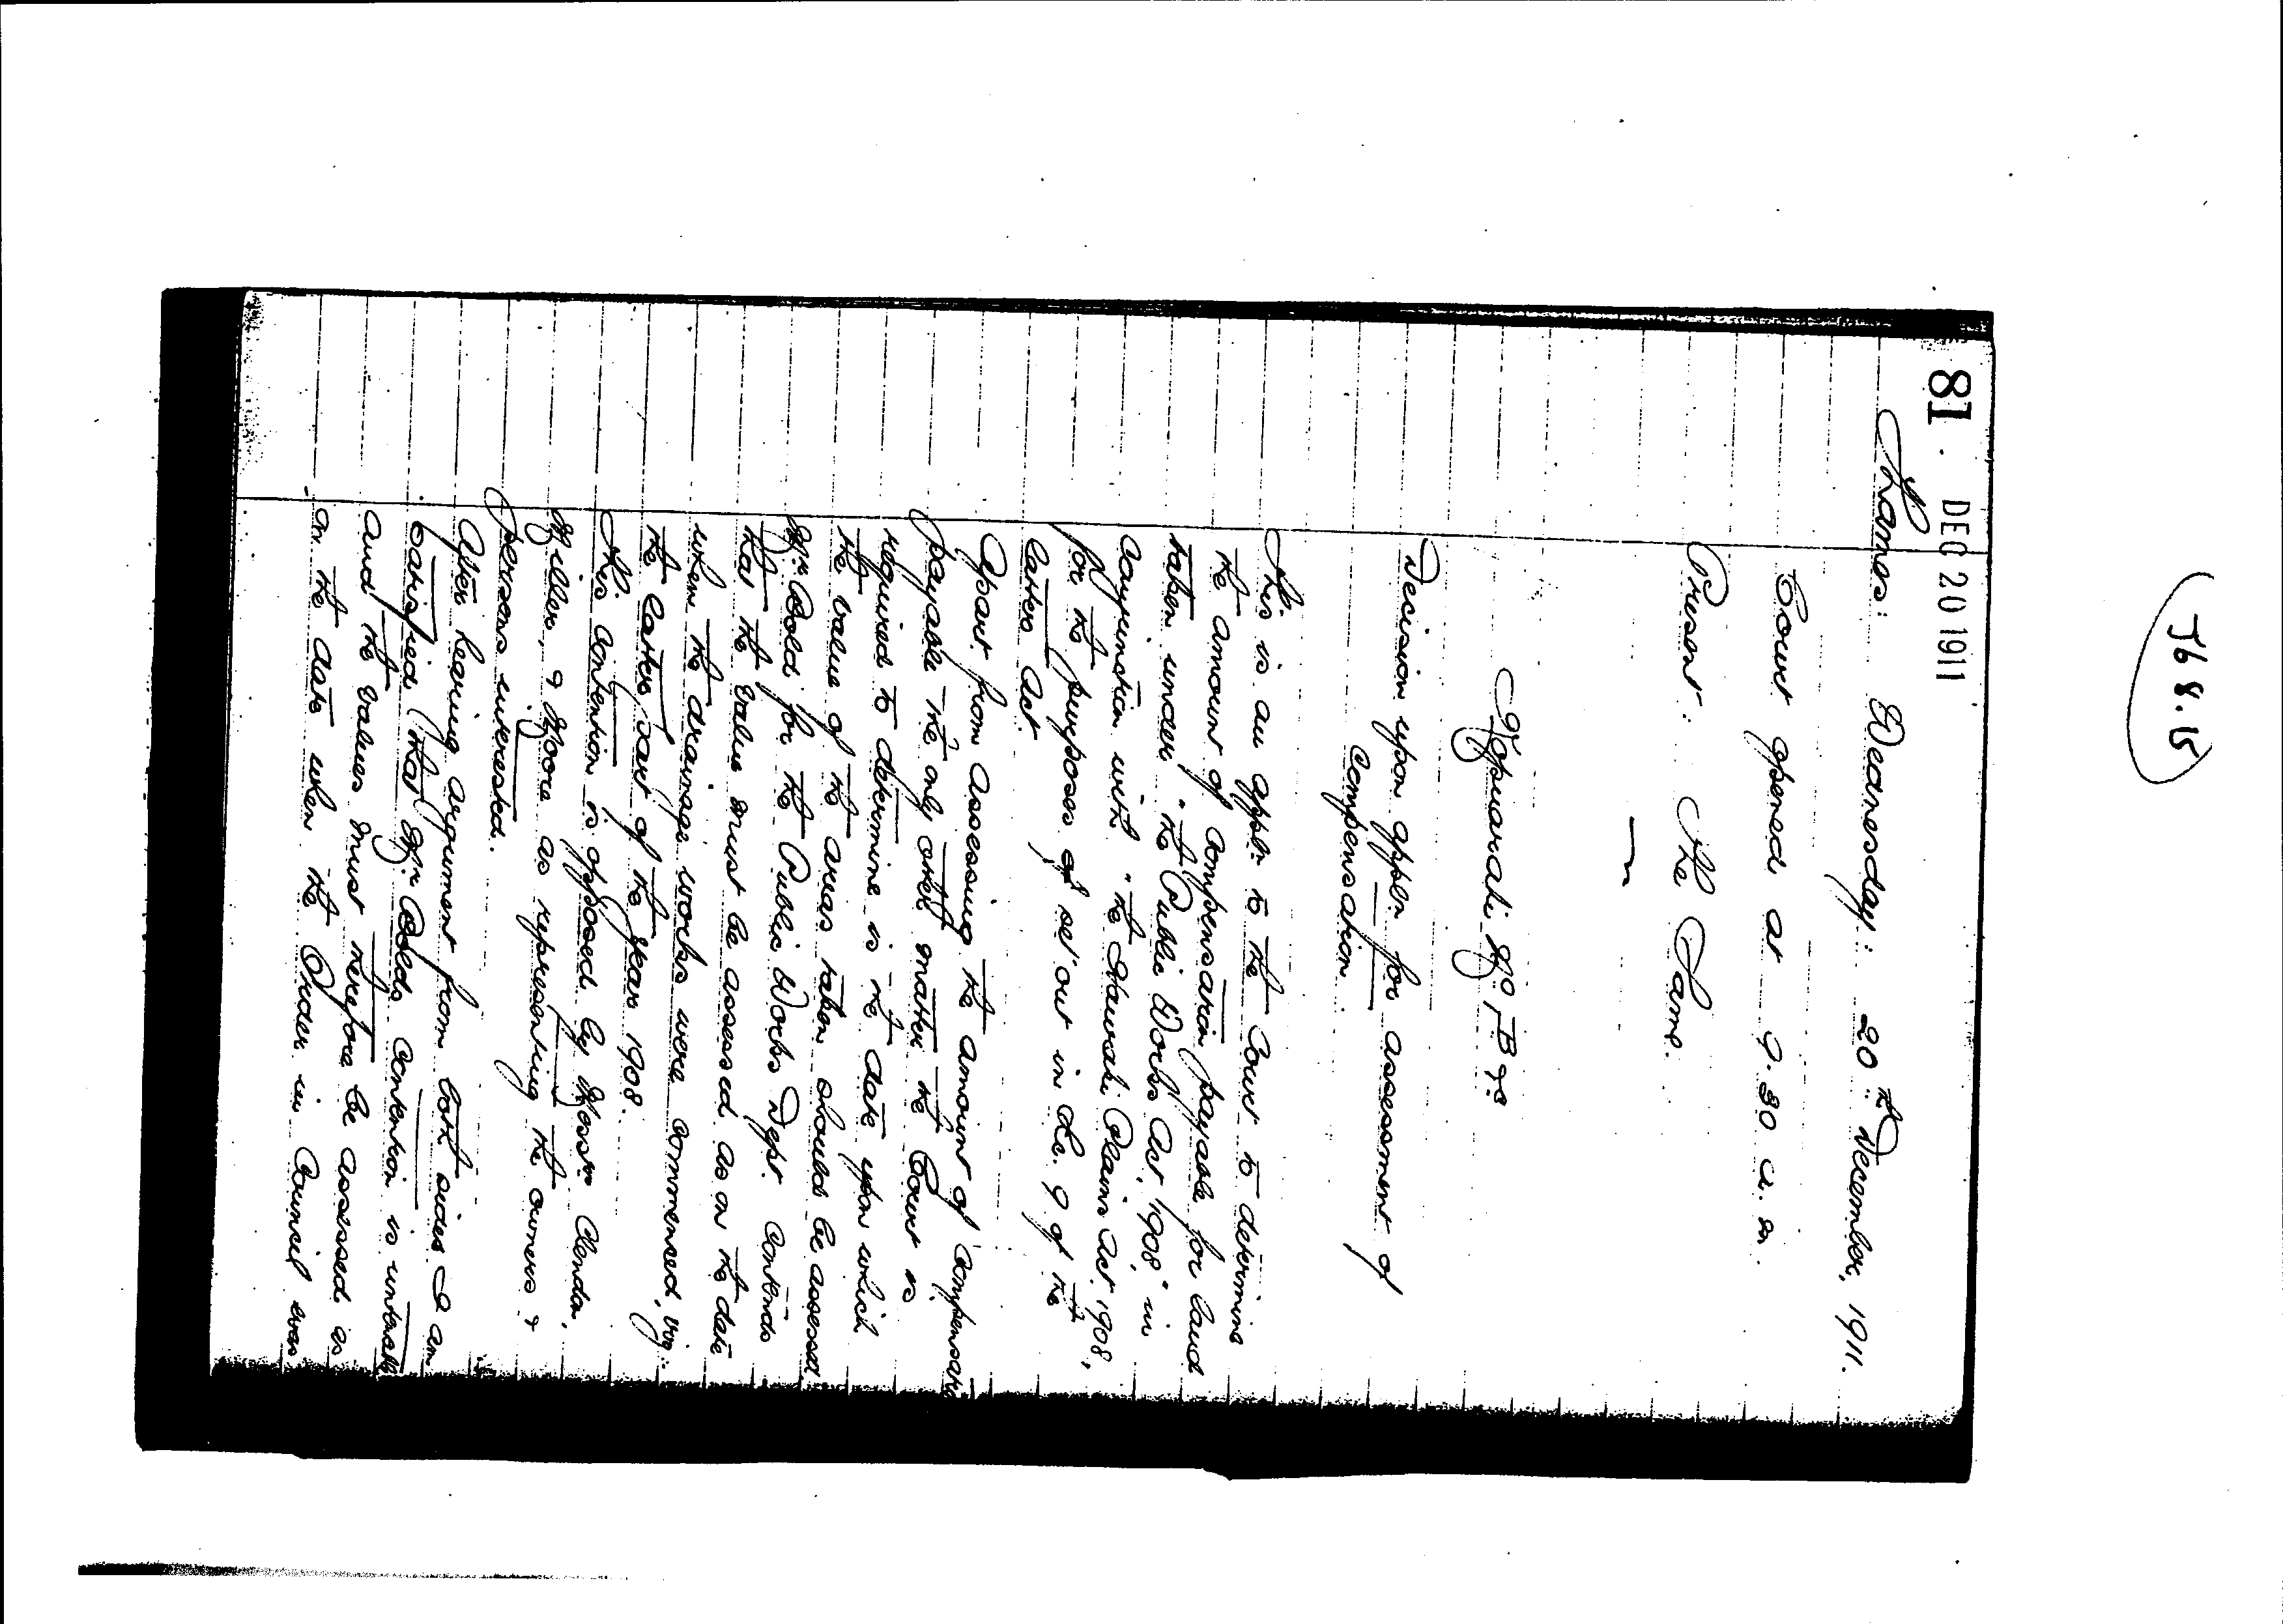 J68.15
81. DEC 20 1911
Thames: Wednesday: 20th December, 1911.
Court opened at 9.30 a.m.
Present: The Same.
Kopuarahi No 1B &c
Decision upon appln for assessment of
Compensation.
This is an appln to the Court to determine
the amount of Compensation payable for land
taken under "the Public Works Act, 1908" in
conjunction with "the Hauraki Plains Act, 1908,
for the purposes of set out in Sec. 9 of the
latter Act.
Apart from assessing the amount of Compensation
payable the only other matter the Court is
required to determine is the date upon which
the value of the areas taken should be assessed.
Mr. for the Public Works Dept. contends
that the value must be assessed as on the date
when the drainage works were commenced, viz:
the latter part of the year 1908.
This contention is opposed by Messrs Clendon,
Miller, & Moore as representing the owners &
persons interested.
After hearing argument from both sides I am
satisfied that Mr. contention is untenable
and the values must therefore be assessed as
on the date when the Order in Council was